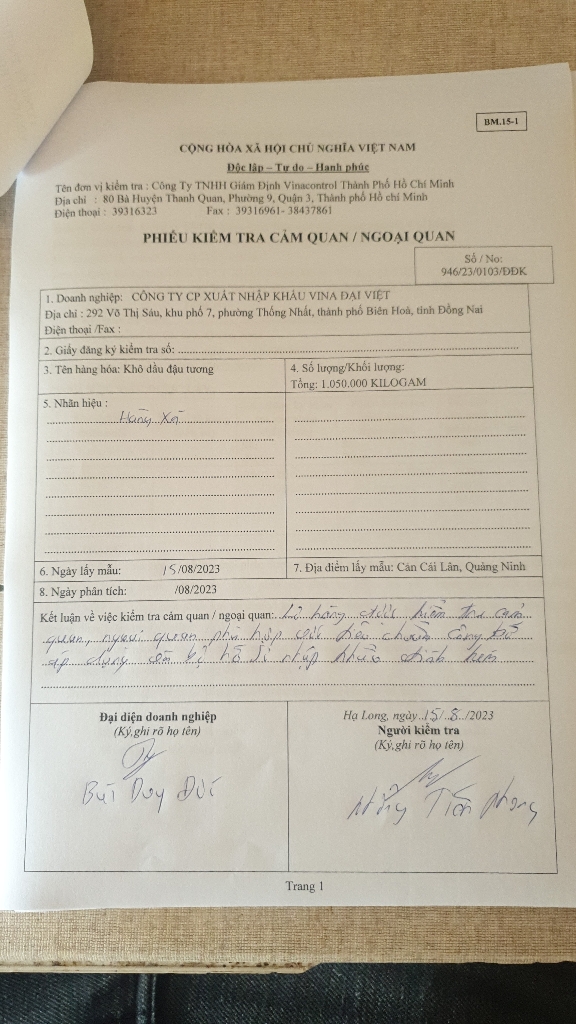 BM.15-1
CỘNG HÒA XÃ HỘI CHỦ NGHĨA VIỆT NAM
Độc lập – Tự do – Hạnh phúc
Tên đơn vị kiểm tra : Công Ty TNHH Giám Định Vinacontrol Thành Phố Hồ Chí Minh
Địa chỉ : 80 Bà Huyện Thanh Quan, Phường 9, Quận 3, Thành phố Hồ chí Minh
Điện thoại : 39316323 Fax : 39316961- 38437861
PHIẾU KIỂM TRA CẢM QUAN / NGOẠI QUAN
Số / No:
946/23/0103/ĐĐK
1. Doanh nghiệp: CÔNG TY CP XUẤT NHẬP KHẨU VINA ĐẠI VIỆT
Địa chỉ : 292 Võ Thị Sáu, khu phố 7, phường Thống Nhất, thành phố Biên Hoà, tỉnh Đồng Nai
Điện thoại /Fax :
2. Giấy đăng ký kiểm tra số:
3. Tên hàng hóa: Khô dầu đậu tương
4. Số lượng/Khối lượng:
Tổng: 1.050.000 KILOGAM
5. Nhãn hiệu :
Hàng Xá
6. Ngày lấy mẫu: 15/08/2023
7. Địa điểm lấy mẫu: Cản Cái Lân, Quảng Ninh
8. Ngày phân tích: /08/2023
Kết luận về việc kiểm tra cảm quan / ngoại quan: Lô hàng được kiểm tra cảm
quan, ngoại quan phù hợp với tiêu chuẩn công bố
áp dụng hồ sơ nhập khẩu đính kèm
Đại diện doanh nghiệp
(Ký,ghi rõ họ tên)
Bùi Duy Đức
Hạ Long, ngày 15/8/2023
Người kiểm tra
(Ký,ghi rõ họ tên)
Tiến Phong
Trang 1